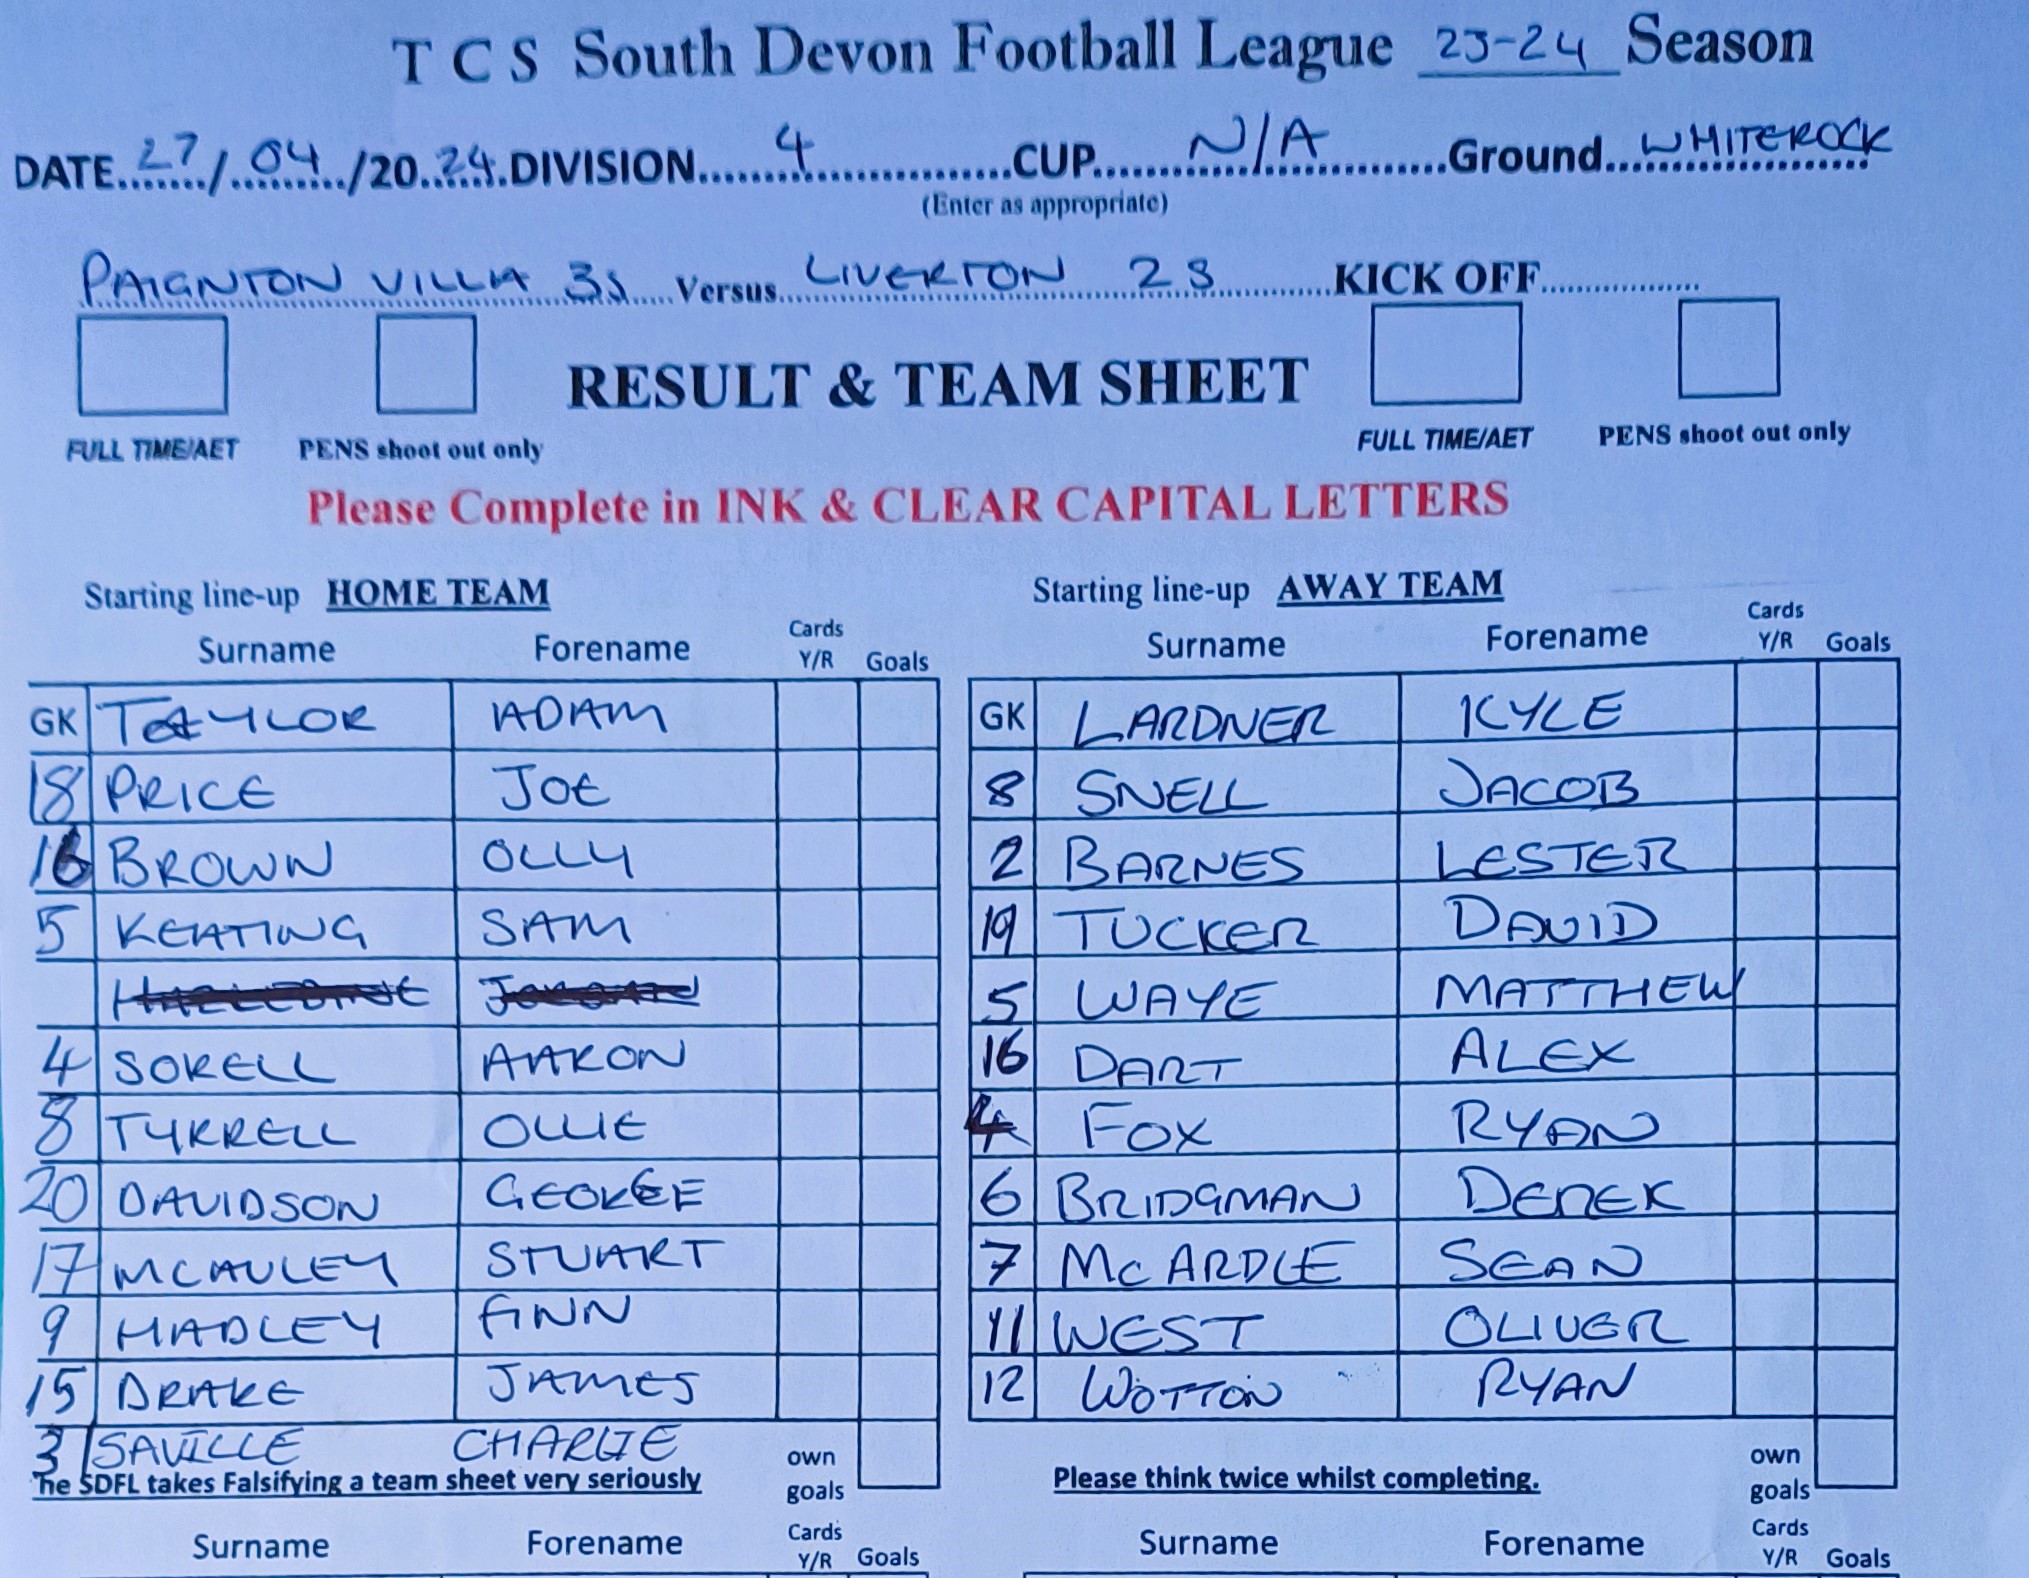 T C S South Devon Football League 23-24 Season
DATE 27/04/2024 DIVISION 4 CUP N/A Ground WHITEROCK
(Enter as appropriate)
PAIGNTON VILLA 3s Versus LIVERTON 2S KICK OFF
RESULT & TEAM SHEET
FULL TIME/AET PENS shoot out only FULL TIME/AET PENS shoot out only
Please Complete in INK & CLEAR CAPITAL LETTERS
Starting line-up HOME TEAM Starting line-up AWAY TEAM
Surname Forename Cards Y/R Goals Surname Forename Cards Y/R Goals
GK TAYLOR ADAM GK LARDNER KYLE
18 PRICE JOE 8 SNELL JACOB
16 BROWN OLLY 2 BARNES LESTER
5 KEATING SAM 19 TUCKER DAVID
5 WAYE MATTHEW
4 SORELL AARON 16 DART ALEX
8 TYRRELL OLLIE 4 FOX RYAN
20 DAVIDSON GEORGE 6 BRIDGMAN DEREK
17 MCAULEY STUART 7 McARDLE SEAN
9 HADLEY FINN 11 WEST OLIVER
15 DRAKE JAMES 12 WOTTON RYAN
3 SAVILLE CHARLIE own goals own goals
The SDFL takes Falsifying a team sheet very seriously Please think twice whilst completing.
Surname Forename Cards Y/R Goals Surname Forename Cards Y/R Goals